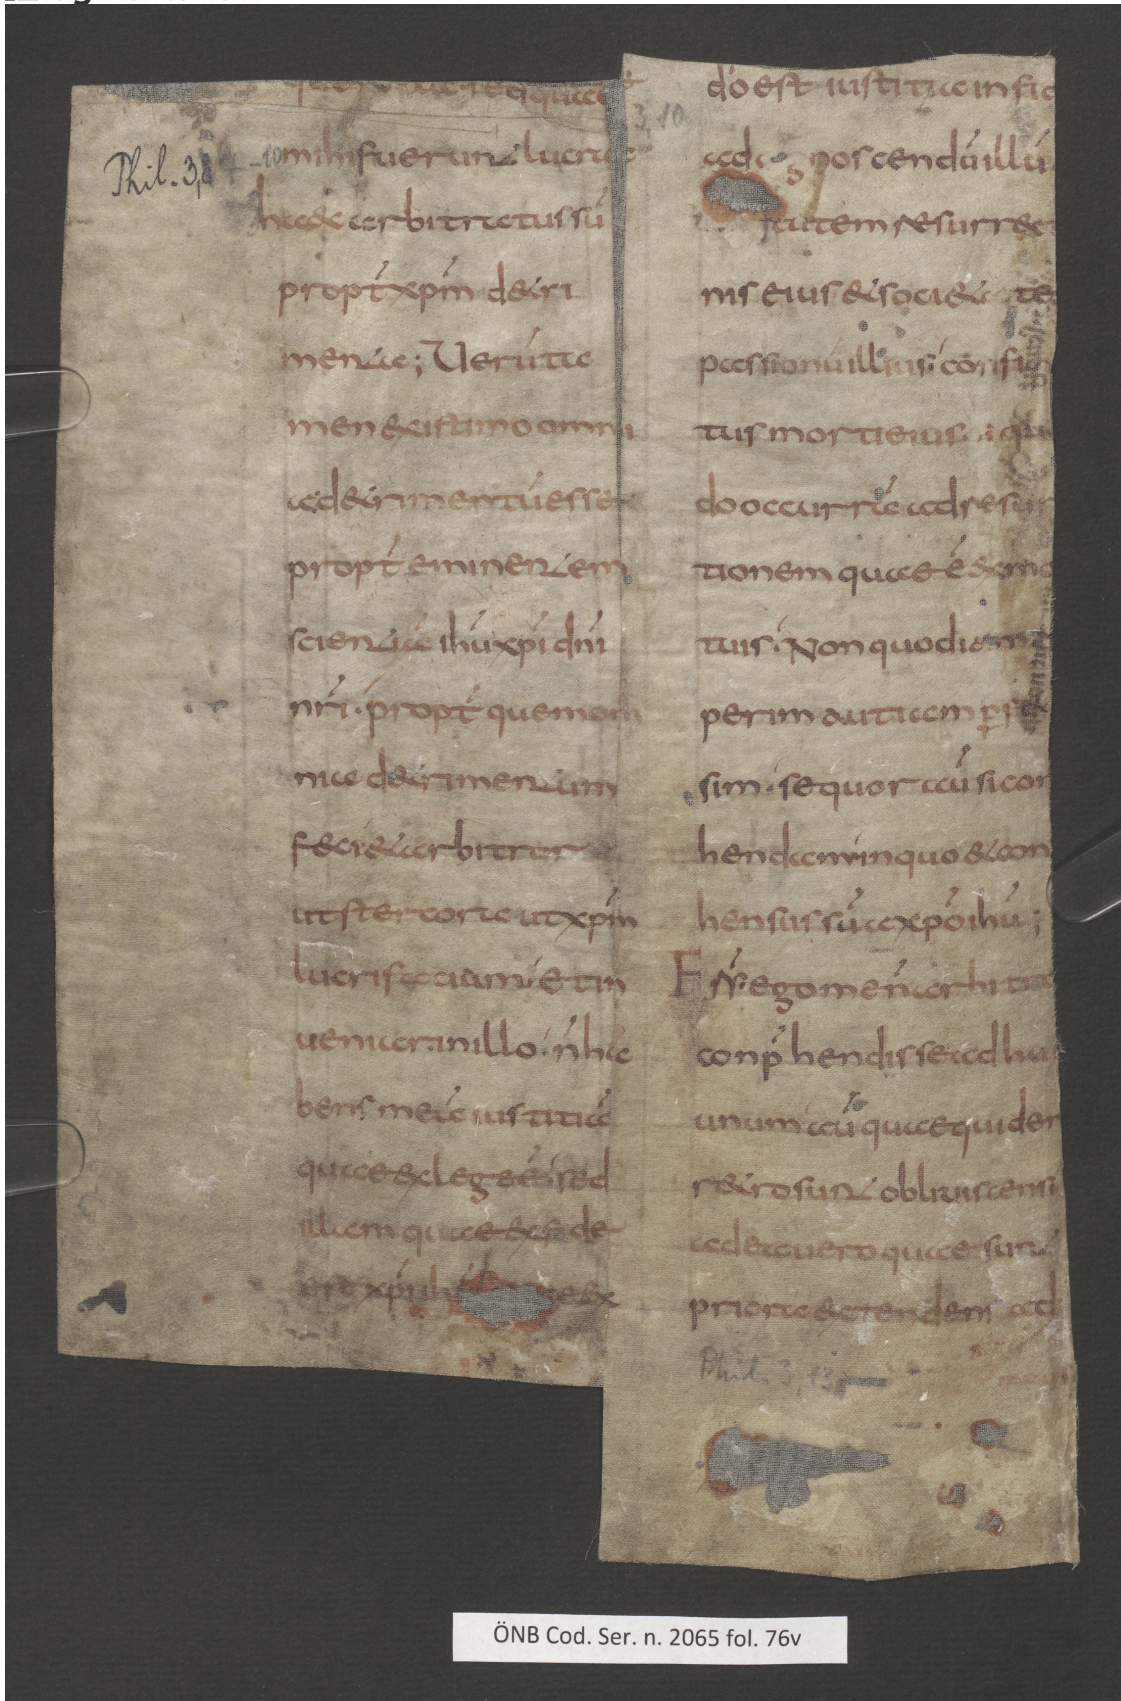 Phil. 3,8 -10
mihi fuerunt lucra
haec arbitratus sū
propt̄ xp̄m detri
menta; Verūta
men existimo omni
a detrimentū esse
propt̄ eminentem
scientiā ihū xp̄i dn̄i
nr̄i. propt̄ quem om
nia detrimentum
feci et arbitror
ut stercora ut xp̄m
lucrifaciam. Et in
veniar in illo. n̄ ha
bens meā iustitiā
quae ex lege ē. sed
illam quae ex fide
xp̄i ih̄ ex
3,10
d̄o est iustitia in fid
ad agnoscendū illū
tutem resurrec
nis eius et societ te
passionū illius. config
tus morti eius. si quo
do occurrā ad resur
tionem quae ē ex mo
tuis. Non quod iam
perim aut iam p̄f
sim. sequor aū si con
hendam in quo et con
hensus sū a xp̄o ihū;
Fr̄r. ego me n̄ arbitra
conp̄hendisse ad hu
unum aū quae quidem
retro sunt obliviscens
ad ea vero quae sunt
priora extendens ad
Phil. 3, 13
ÖNB Cod. Ser. n. 2065 fol. 76v